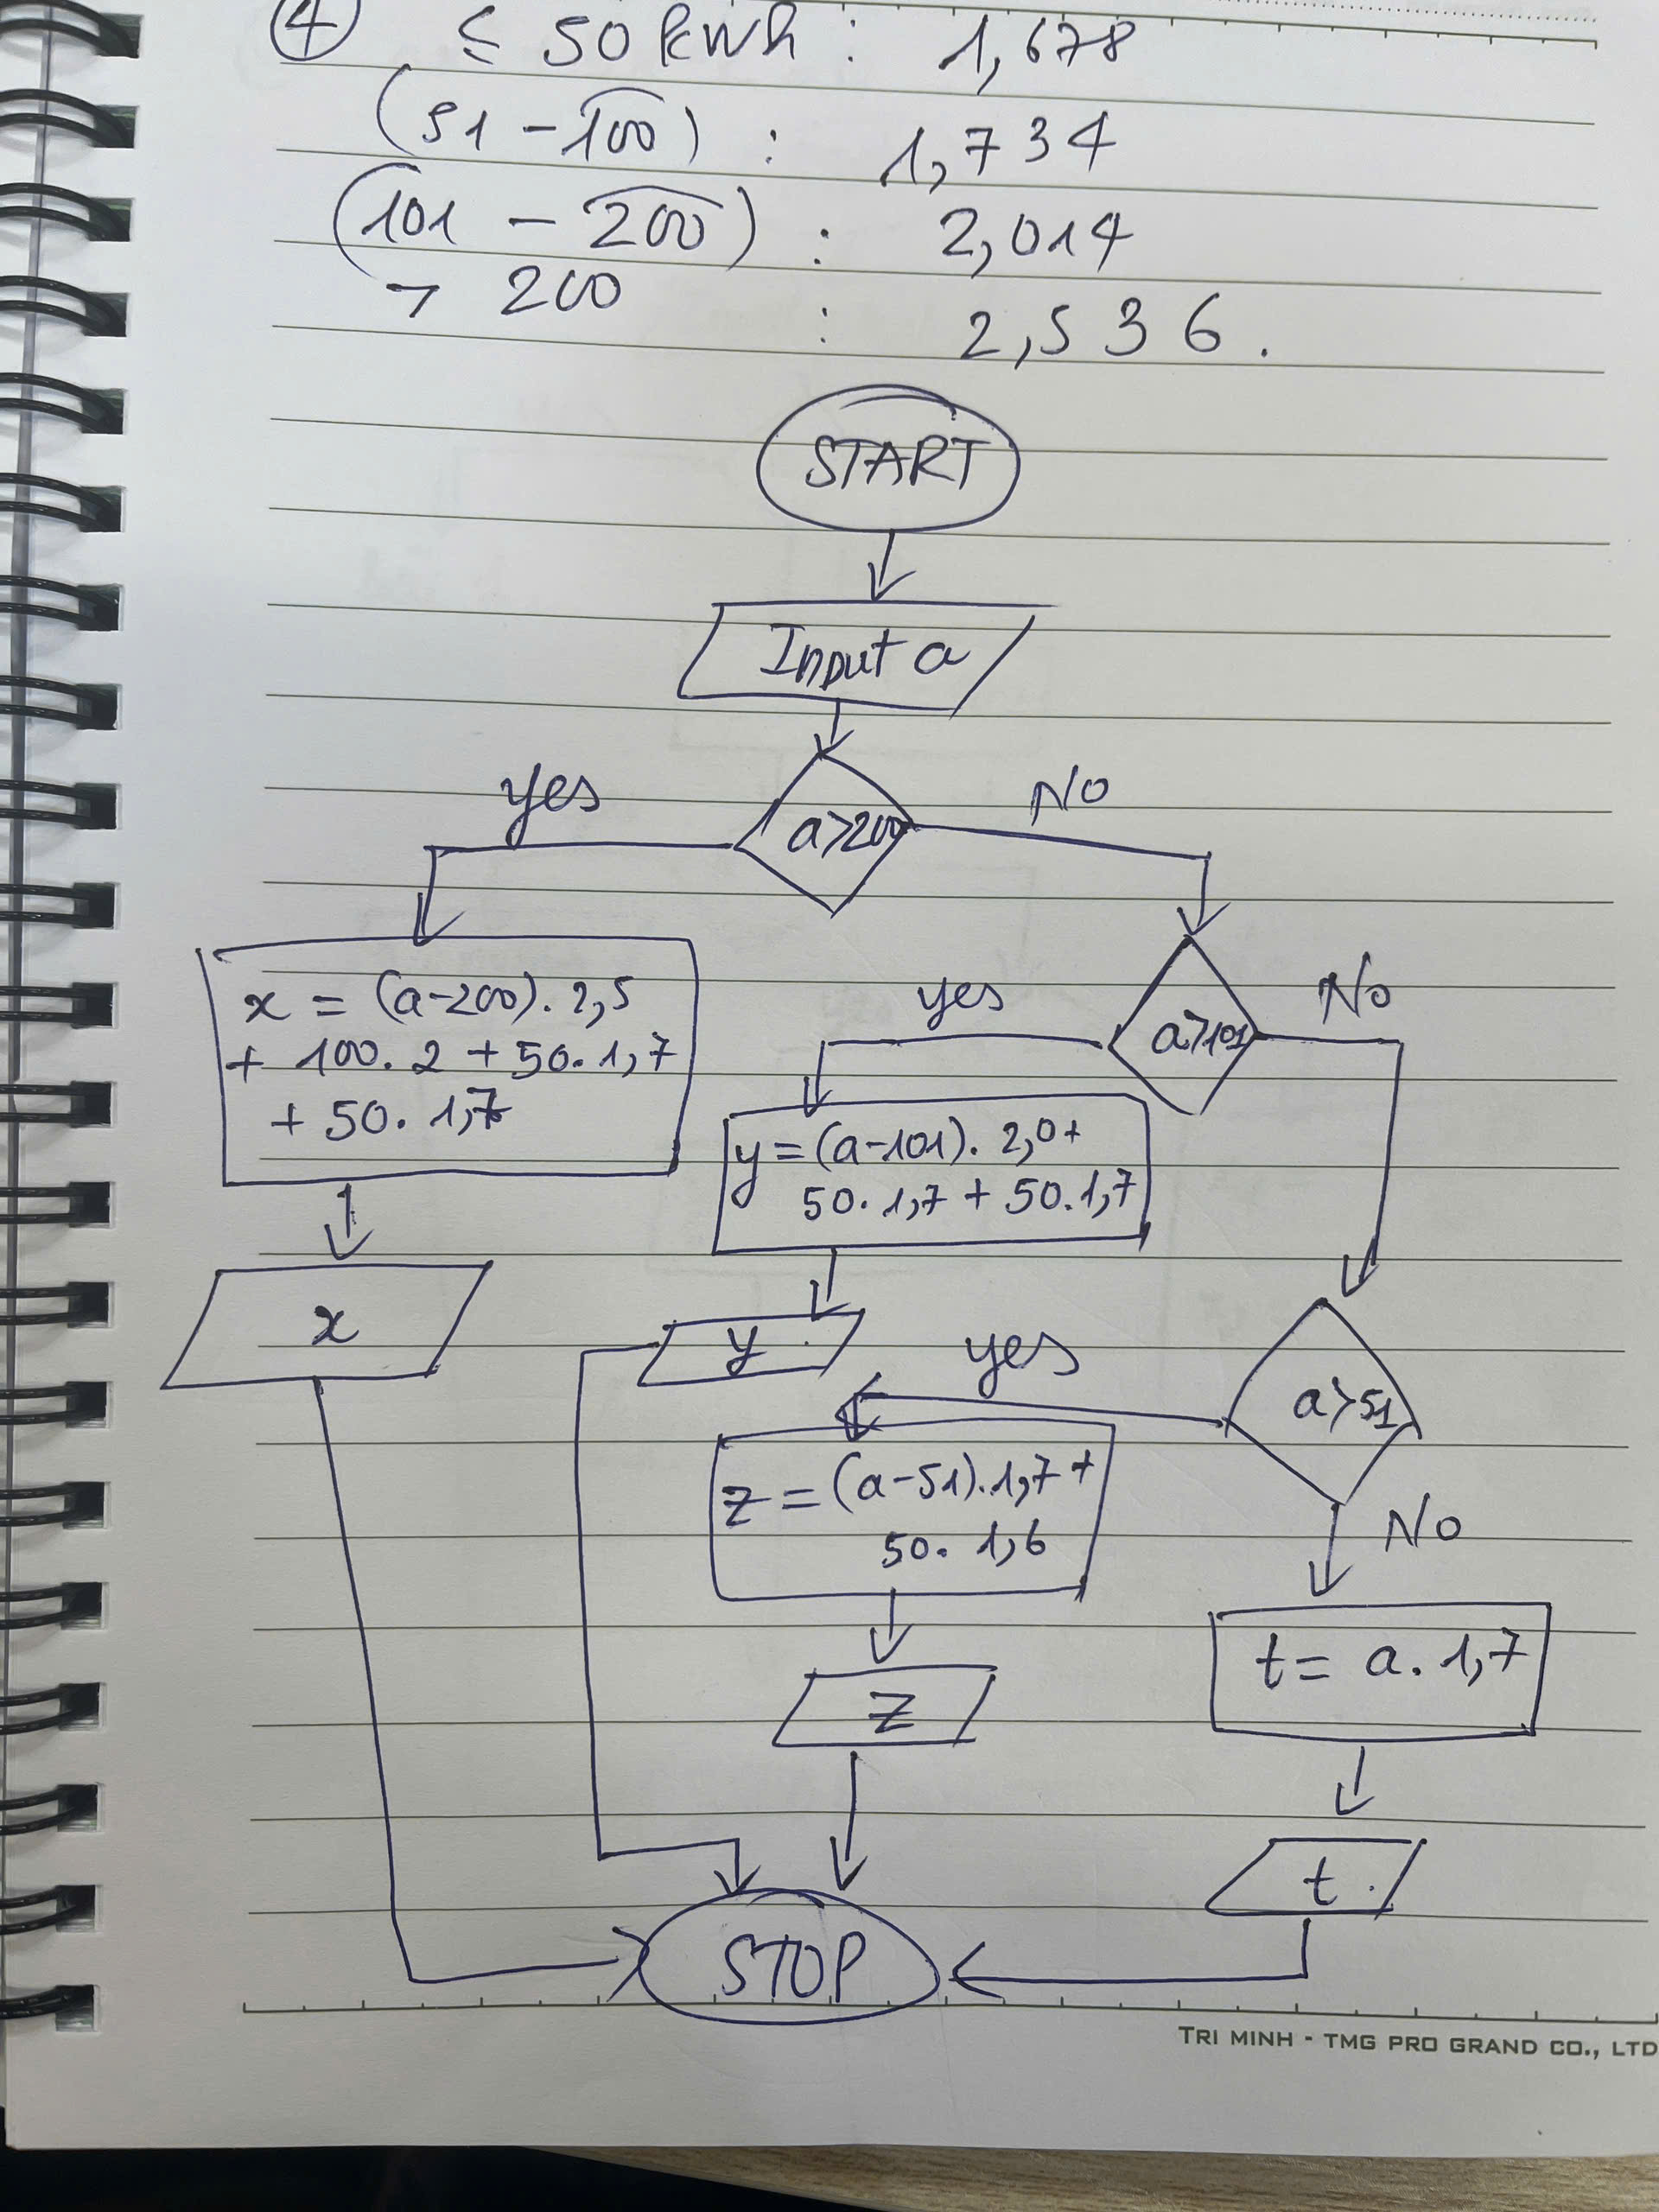 ④ ≤ 50 kwh : 1,678
(51 - 100) : 1,734
(101 - 200) : 2,014
> 200 : 2,536.
START
Input a
yes
a>200
No
x = (a-200). 2,5
+ 100. 2 + 50. 1,7
+ 50. 1,7
x
yes
a>101
No
y = (a-101). 2,0+
50. 1,7 + 50. 1,7
y
yes
a>51
No
z = (a-51). 1,7 +
50. 1,6
z
t = a. 1,7
t
STOP
TRI MINH - TMG PRO GRAND CO., LTD